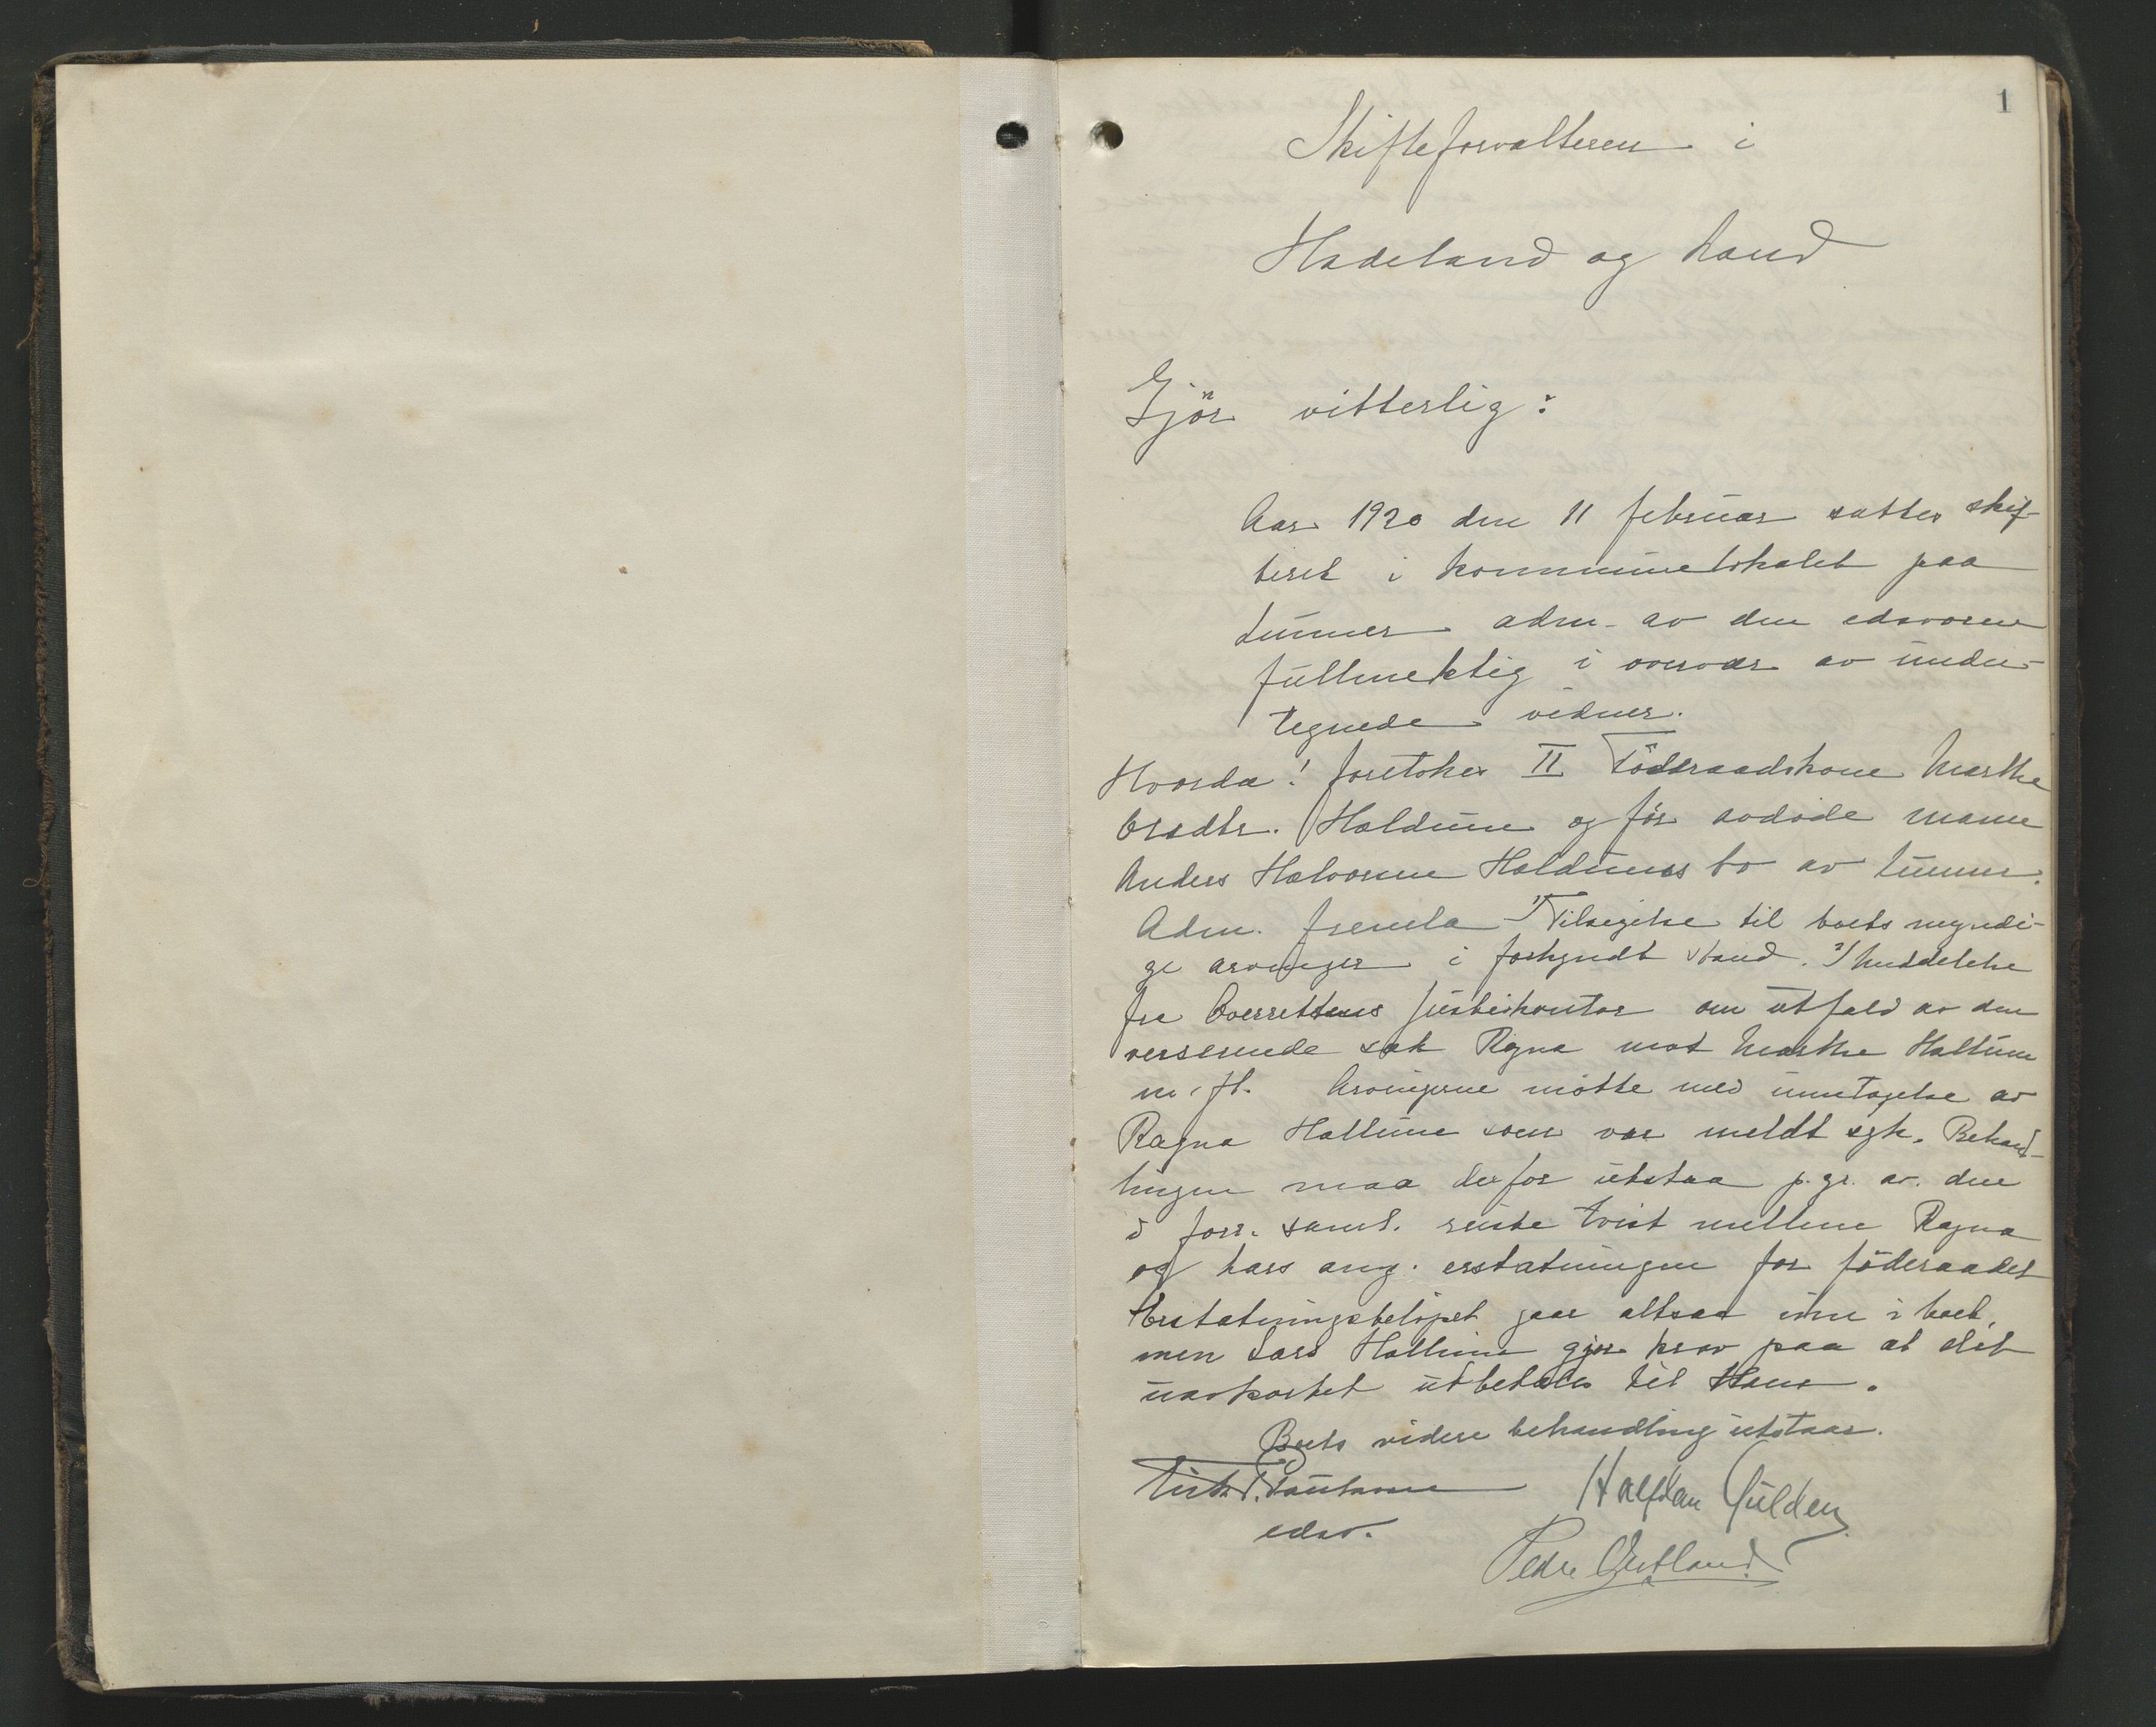 1
Skifteforvalteren i
Hadeland og Land
Gjör vitterlig:
Aar 1920 den 11 februar sattes skif-
teret i kommunelokalet paa
Lunner adm. av den edsvorne
fullmektig i overvær av under-
tegnede vidner.
Hvorda! foretokes II Föderaadskone Marthe
Haldum og för avdöde mann
Anders Halvorsen Haldums bo av Lunner.
Adm. fremla 1/ Tilsigelse til boets myndi-
ge arvinger i forkyndt stand. 2/ Meddelelse
fra Overrettens justiskontor om utfald av den
verserende sak Ragna mot Marthe Hallum
m. fl. Arvingerne mötte med unntagelse av
Ragna Hallum som var meldt syk. Behand-
lingen maa derfor utstaa p. gr. av. den
i forr. saml. reiste tvist mellem Ragna
og Lars ang. erstatningen for föderaadet
Erstatningsbelöpet gaar altsaa inn i boet,
men Lars Hallum gjør krav paa at det
uavkortet utbetales til Ham.
Boets videre behandling utstaar.
Halfdan Gulden
edsv.
Peder